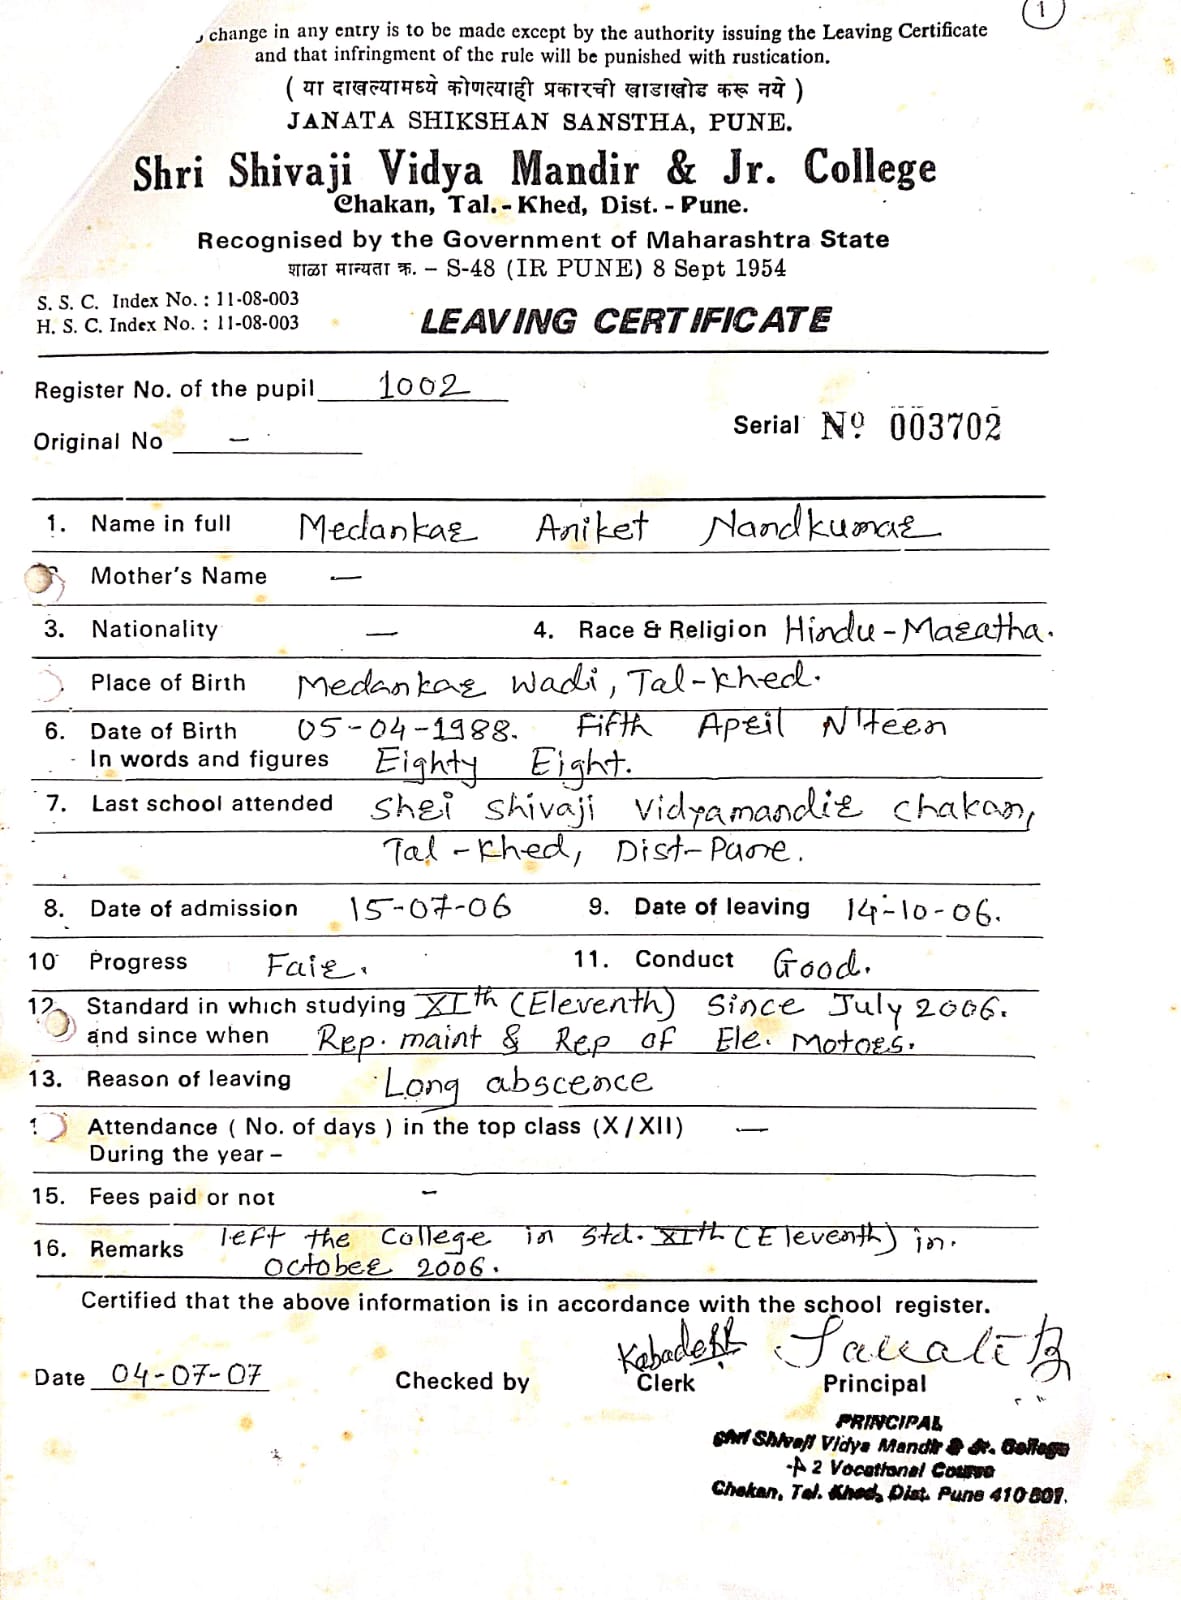 1
change in any entry is to be made except by the authority issuing the Leaving Certificate
and that infringment of the rule will be punished with rustication.
( या दाखल्यामध्ये कोणत्याही प्रकारची खाडाखोड करू नये )
JANATA SHIKSHAN SANSTHA, PUNE.
Shri Shivaji Vidya Mandir & Jr. College
Chakan, Tal.- Khed, Dist. - Pune.
Recognised by the Government of Maharashtra State
शाळा मान्यता क्र. – S-48 (IR PUNE) 8 Sept 1954
S. S. C. Index No. : 11-08-003
H. S. C. Index No. : 11-08-003
LEAVING CERTIFICATE
Register No. of the pupil 1002
Serial Nº 003702
Original No –
1. Name in full Medankar Aniket Nandkumar
Mother's Name —
3. Nationality — 4. Race & Religion Hindu-Maratha.
Place of Birth Medankar Wadi, Tal-Khed.
6. Date of Birth 05-04-1988. Fifth April N'teen
In words and figures Eighty Eight.
7. Last school attended Shri Shivaji Vidyamandir Chakan,
Tal-Khed, Dist-Pune.
8. Date of admission 15-07-06 9. Date of leaving 14-10-06.
10 Progress Fair. 11. Conduct Good.
12. Standard in which studying XIth (Eleventh) Since July 2006.
and since when Rep. maint & Rep of Ele. Motors.
13. Reason of leaving Long abscence
Attendance ( No. of days ) in the top class (X / XII) —
During the year –
15. Fees paid or not –
16. Remarks left the College in Std. XIth (Eleventh) in.
October 2006.
Certified that the above information is in accordance with the school register.
Date 04-07-07 Checked by Clerk Principal
PRINCIPAL
Shri Shivaji Vidya Mandir & Jr. College
+ 2 Vocational Course
Chakan, Tal. Khed, Dist. Pune 410 501.